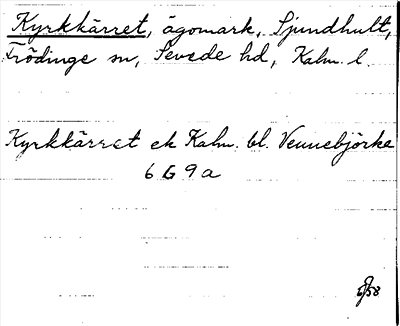 Kyrkkärret, ägomark, Ljundhult,
Frödinge sn, Sevede hd, Kalm. l.
Kyrkkärret ek Kalm. bl. Vennebjörke
6 G 9 a